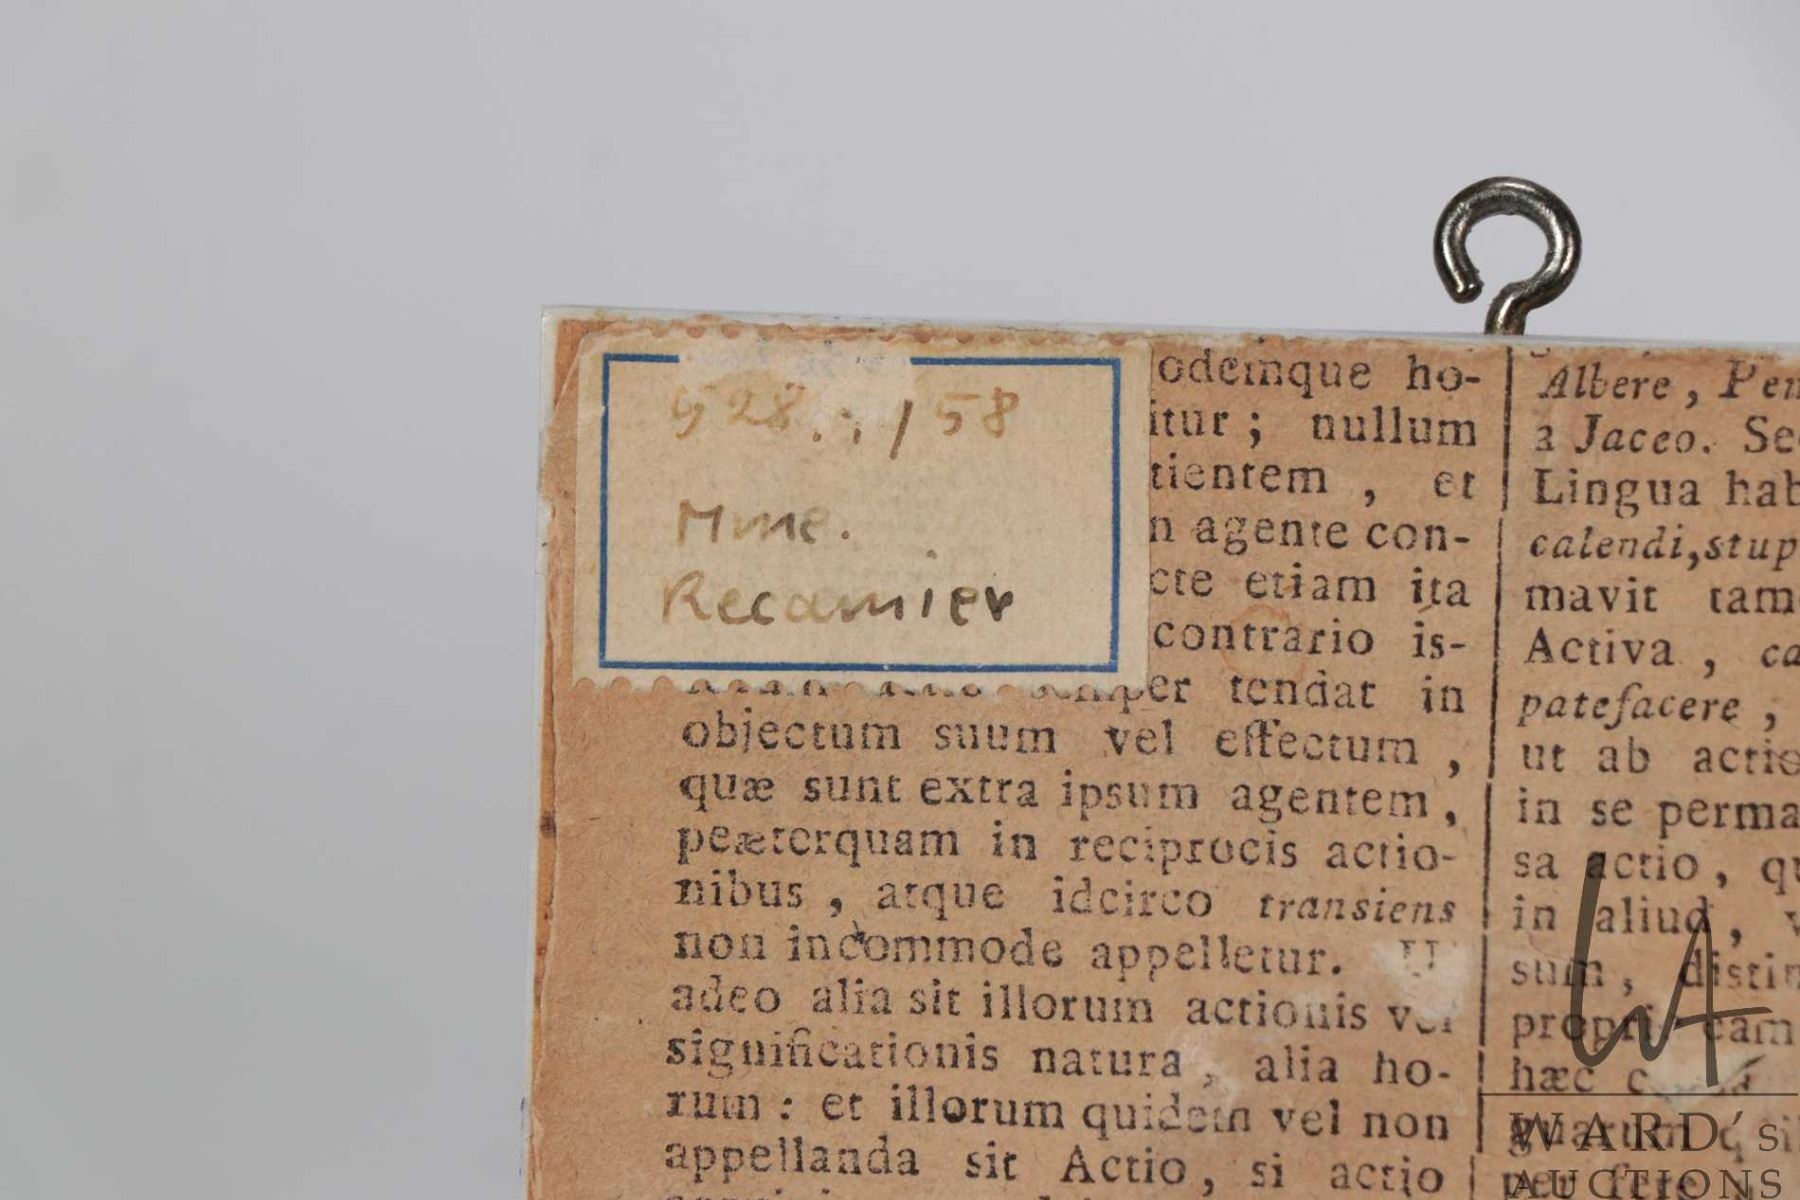 528../58
Mme.
Recamier
odemque ho-
itur ; nullum
tientem , et
n agente con-
cte etiam ita
contrario is-
semper tendat in
objectum suum vel effectum ,
quæ sunt extra ipsum agentem,
peæterquam in reciprocis actio-
nibus , atque idcirco transiens
non incommode appelletur.
adeo alia sit illorum actionis vel
significationis natura , alia ho-
rum : et illorum quidem vel non
appellanda sit Actio, si actio
Albere, Pen
a Jaceo. Sec
Lingua hab
calendi, stup
mavit tam
Activa , ca
patefacere ,
ut ab actio
in se perma
sa actio, qu
in aliud, v
sum, distin
propri eam
hæc
per fere
WA
WARD's
AUCTIONS